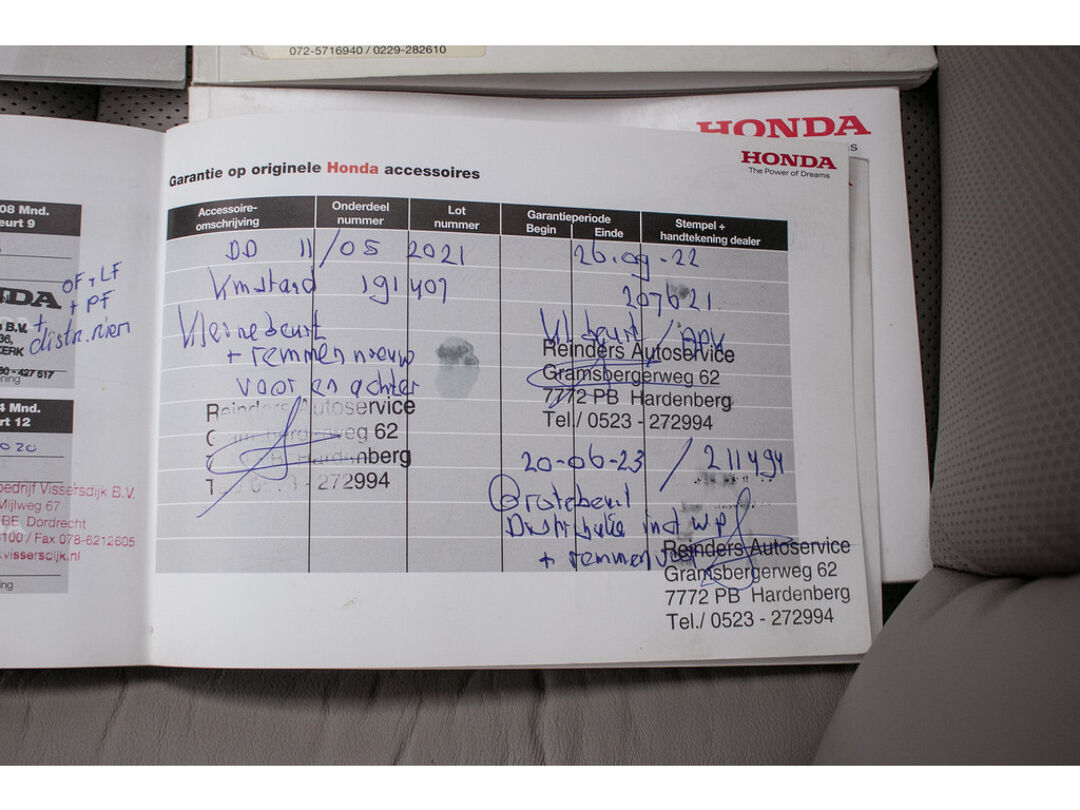 072-5716940 / 0229-282610
HONDA
HONDA
The Power of Dreams
Garantie op originele Honda accessoires
Accessoire-omschrijving
Onderdeel nummer
Lot nummer
Garantieperiode
Begin
Einde
Stempel + handtekening dealer
DD 11/05 2021
Kmstand 191407
Kleinebeurt
+ remmen nieuw
voor en achter
Reinders Autoservice
Gramsbergerweg 62
Hardenberg
272994
26.09-22
207621
Kl beurt / APK
Reinders Autoservice
Gramsbergerweg 62
7772 PB Hardenberg
Tel./ 0523 - 272994
20-06-23 / 211494
Grotebeurt
Distributie incl wp
+ remmen
Reinders Autoservice
Gramsbergerweg 62
7772 PB Hardenberg
Tel./ 0523 - 272994
08 Mnd.
eurt 9
OF + LF
+ PF
+
distr. riem
NDA
B.V.
36,
KERK
80 - 427 517
ning
4 Mnd.
rt 12
020
edrijf Vissersdijk B.V.
Mijlweg 67
BE Dordrecht
100 / Fax 078-6212605
vissersdijk.nl
ing